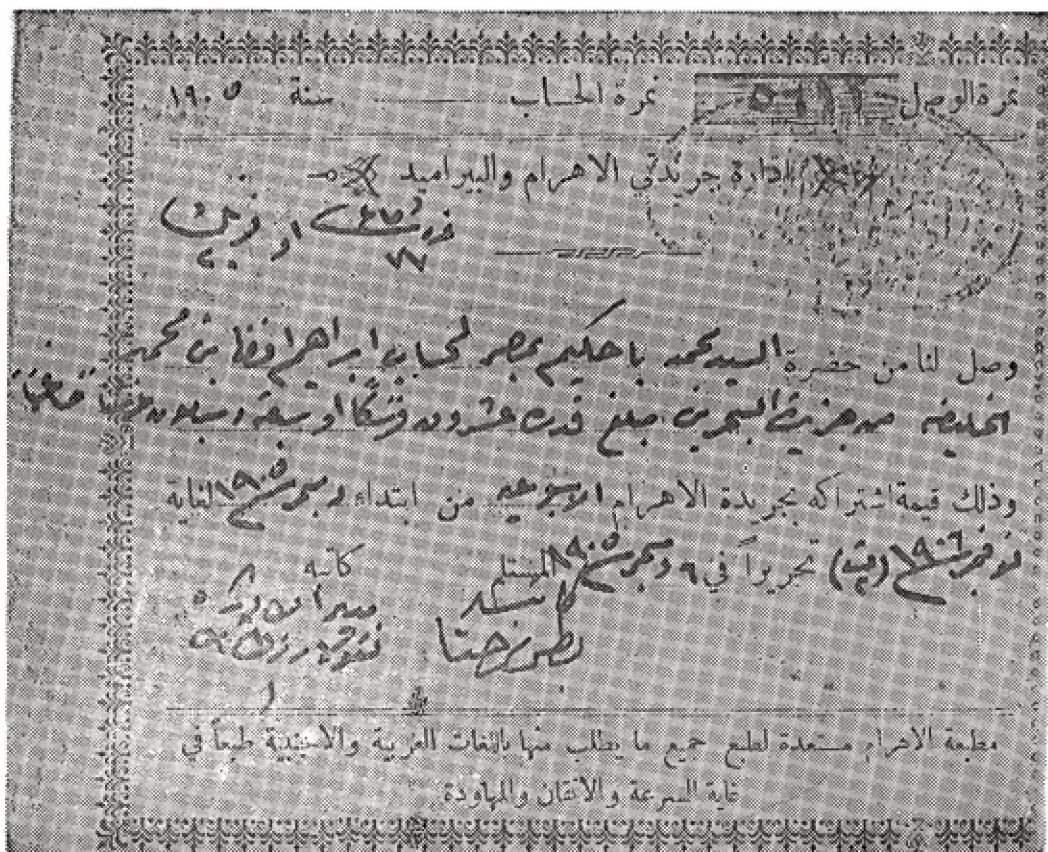 نمرة الوصل نمرة الحساب سنة ١٩٠٥
ادارة جريدتي الاهرام والبيراميد
او فرنك
٧٧ ٢٠
وصل لنا من حضرة السيد محمد باحكيم بمصر لحساب ابراهيم بن محمد
الخليفه من جزيرة البحرين مبلغ قدره عشرون فرنكا او سبعة وسبعون
وذلك قيمة اشتراكه بجريدة الاهرام الاسبوعيه من ابتداء دسمبر ١٩٠٥ لغاية
نوفمبر ١٩٠٦ تحريراً في ٩ دسمبر ١٩٠٥ المستلم كاتبه
مطبعة الاهرام مستعدة لطبع جميع ما يطلب منها باللغات العربية والاجنبية طبعاً في
غاية السرعة والاتقان والمهاودة